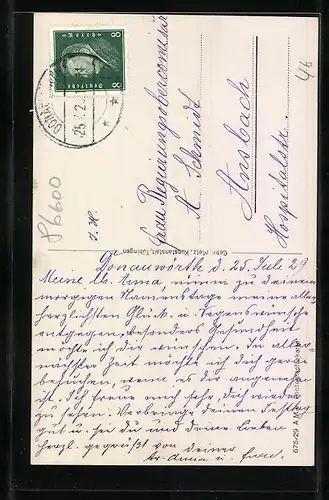 8 Deutsche Reich 8
DONAU
25.
46
P6600
Frau Regierungsobersekretär
A. Schmidt
Ansbach
Hospitalstr.
I. H.
Gebr. Metz, Kunstanstalt, Tübingen
Donauwörth d. 25. Juli 29
Meine lb. Emma, nimm zu deinem
morgigen Namenstage meine aller-
herzlichsten Glück- u. Segenswünsche
entgegen, besonders Gesundheit
möchte ich dir wünschen. In aller-
nächster Zeit möchte ich dich gerne
besuchen, wenn es dir angenehm
ist. Ich freue mich sehr, dich wieder
zu sehen. Verbringe deinen Festtag
gut u. sei du und deine Lieben
herzl. gegrüßt von deiner
Anna u.